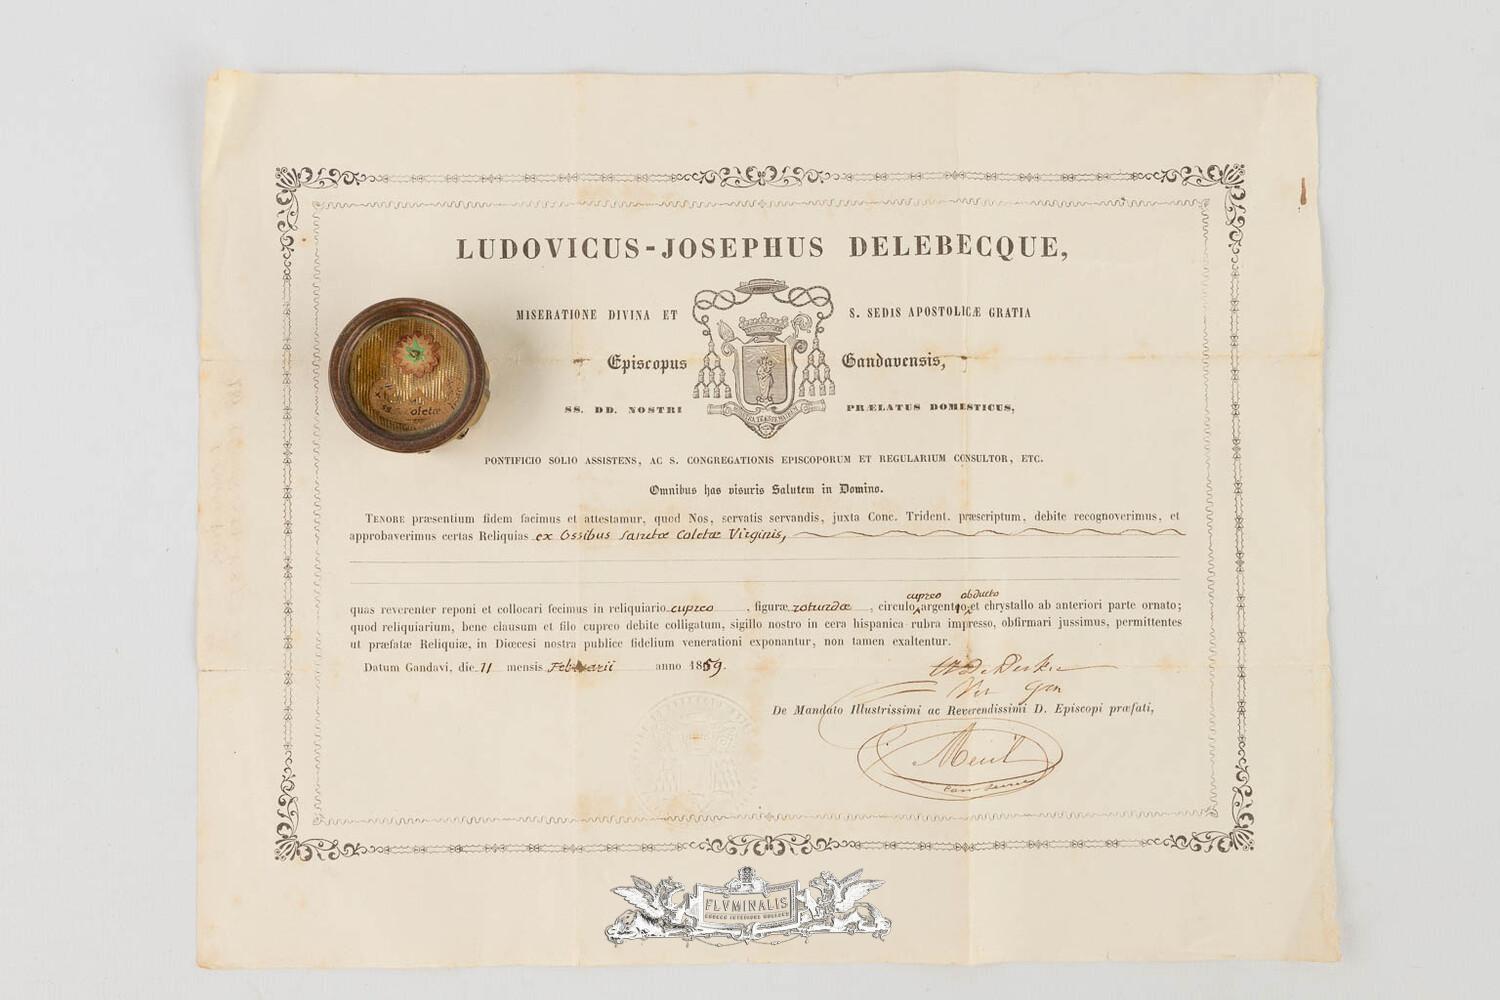 LUDOVICUS-JOSEPHUS DELEBECQUE,
MISERATIONE DIVINA ET S. SEDIS APOSTOLICÆ GRATIA
Episcopus Gandavensis,
SS. DD. NOSTRI PRÆLATUS DOMESTICUS,
PONTIFICIO SOLIO ASSISTENS, AC S. CONGREGATIONIS EPISCOPORUM ET REGULARIUM CONSULTOR, ETC.
Omnibus has visuris Salutem in Domino.
TENORE præsentium fidem facimus et attestamur, quod Nos, servatis servandis, juxta Conc. Trident. præscriptum, debite recognoverimus, et
approbaverimus certas Reliquias ex Ossibus Sanctæ Coletæ Virginis,
cupreo obducto
quas reverenter reponi et collocari fecimus in reliquiario cupreo, figuræ rotundæ, circulo argenteo et chrystallo ab anteriori parte ornato;
quod reliquiarium, bene clausum et filo cupreo debite colligatum, sigillo nostro in cera hispanica rubra impresso, obfirmari jussimus, permittentes
ut præfatæ Reliquiæ, in Diœcesi nostra publice fidelium venerationi exponantur, non tamen exaltentur.
Datum Gandavi, die 11 mensis Februarii anno 1859.
Vic Gen
De Mandato Illustrissimi ac Reverendissimi D. Episcopi præfati,
Coletæ
FLVMINALIS